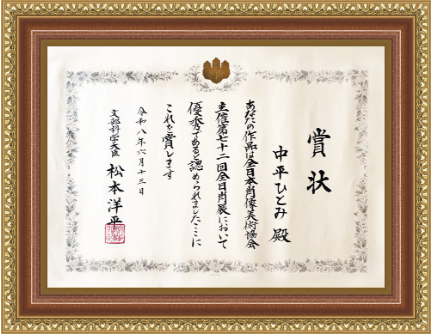 賞状
中平ひとみ 殿
あなたの作品は全日本肖像美術協会
主催第七十二回全日肖展において
優秀であると認められました ここに
これを賞します
令和八年六月十三日
文部科学大臣 松本洋平